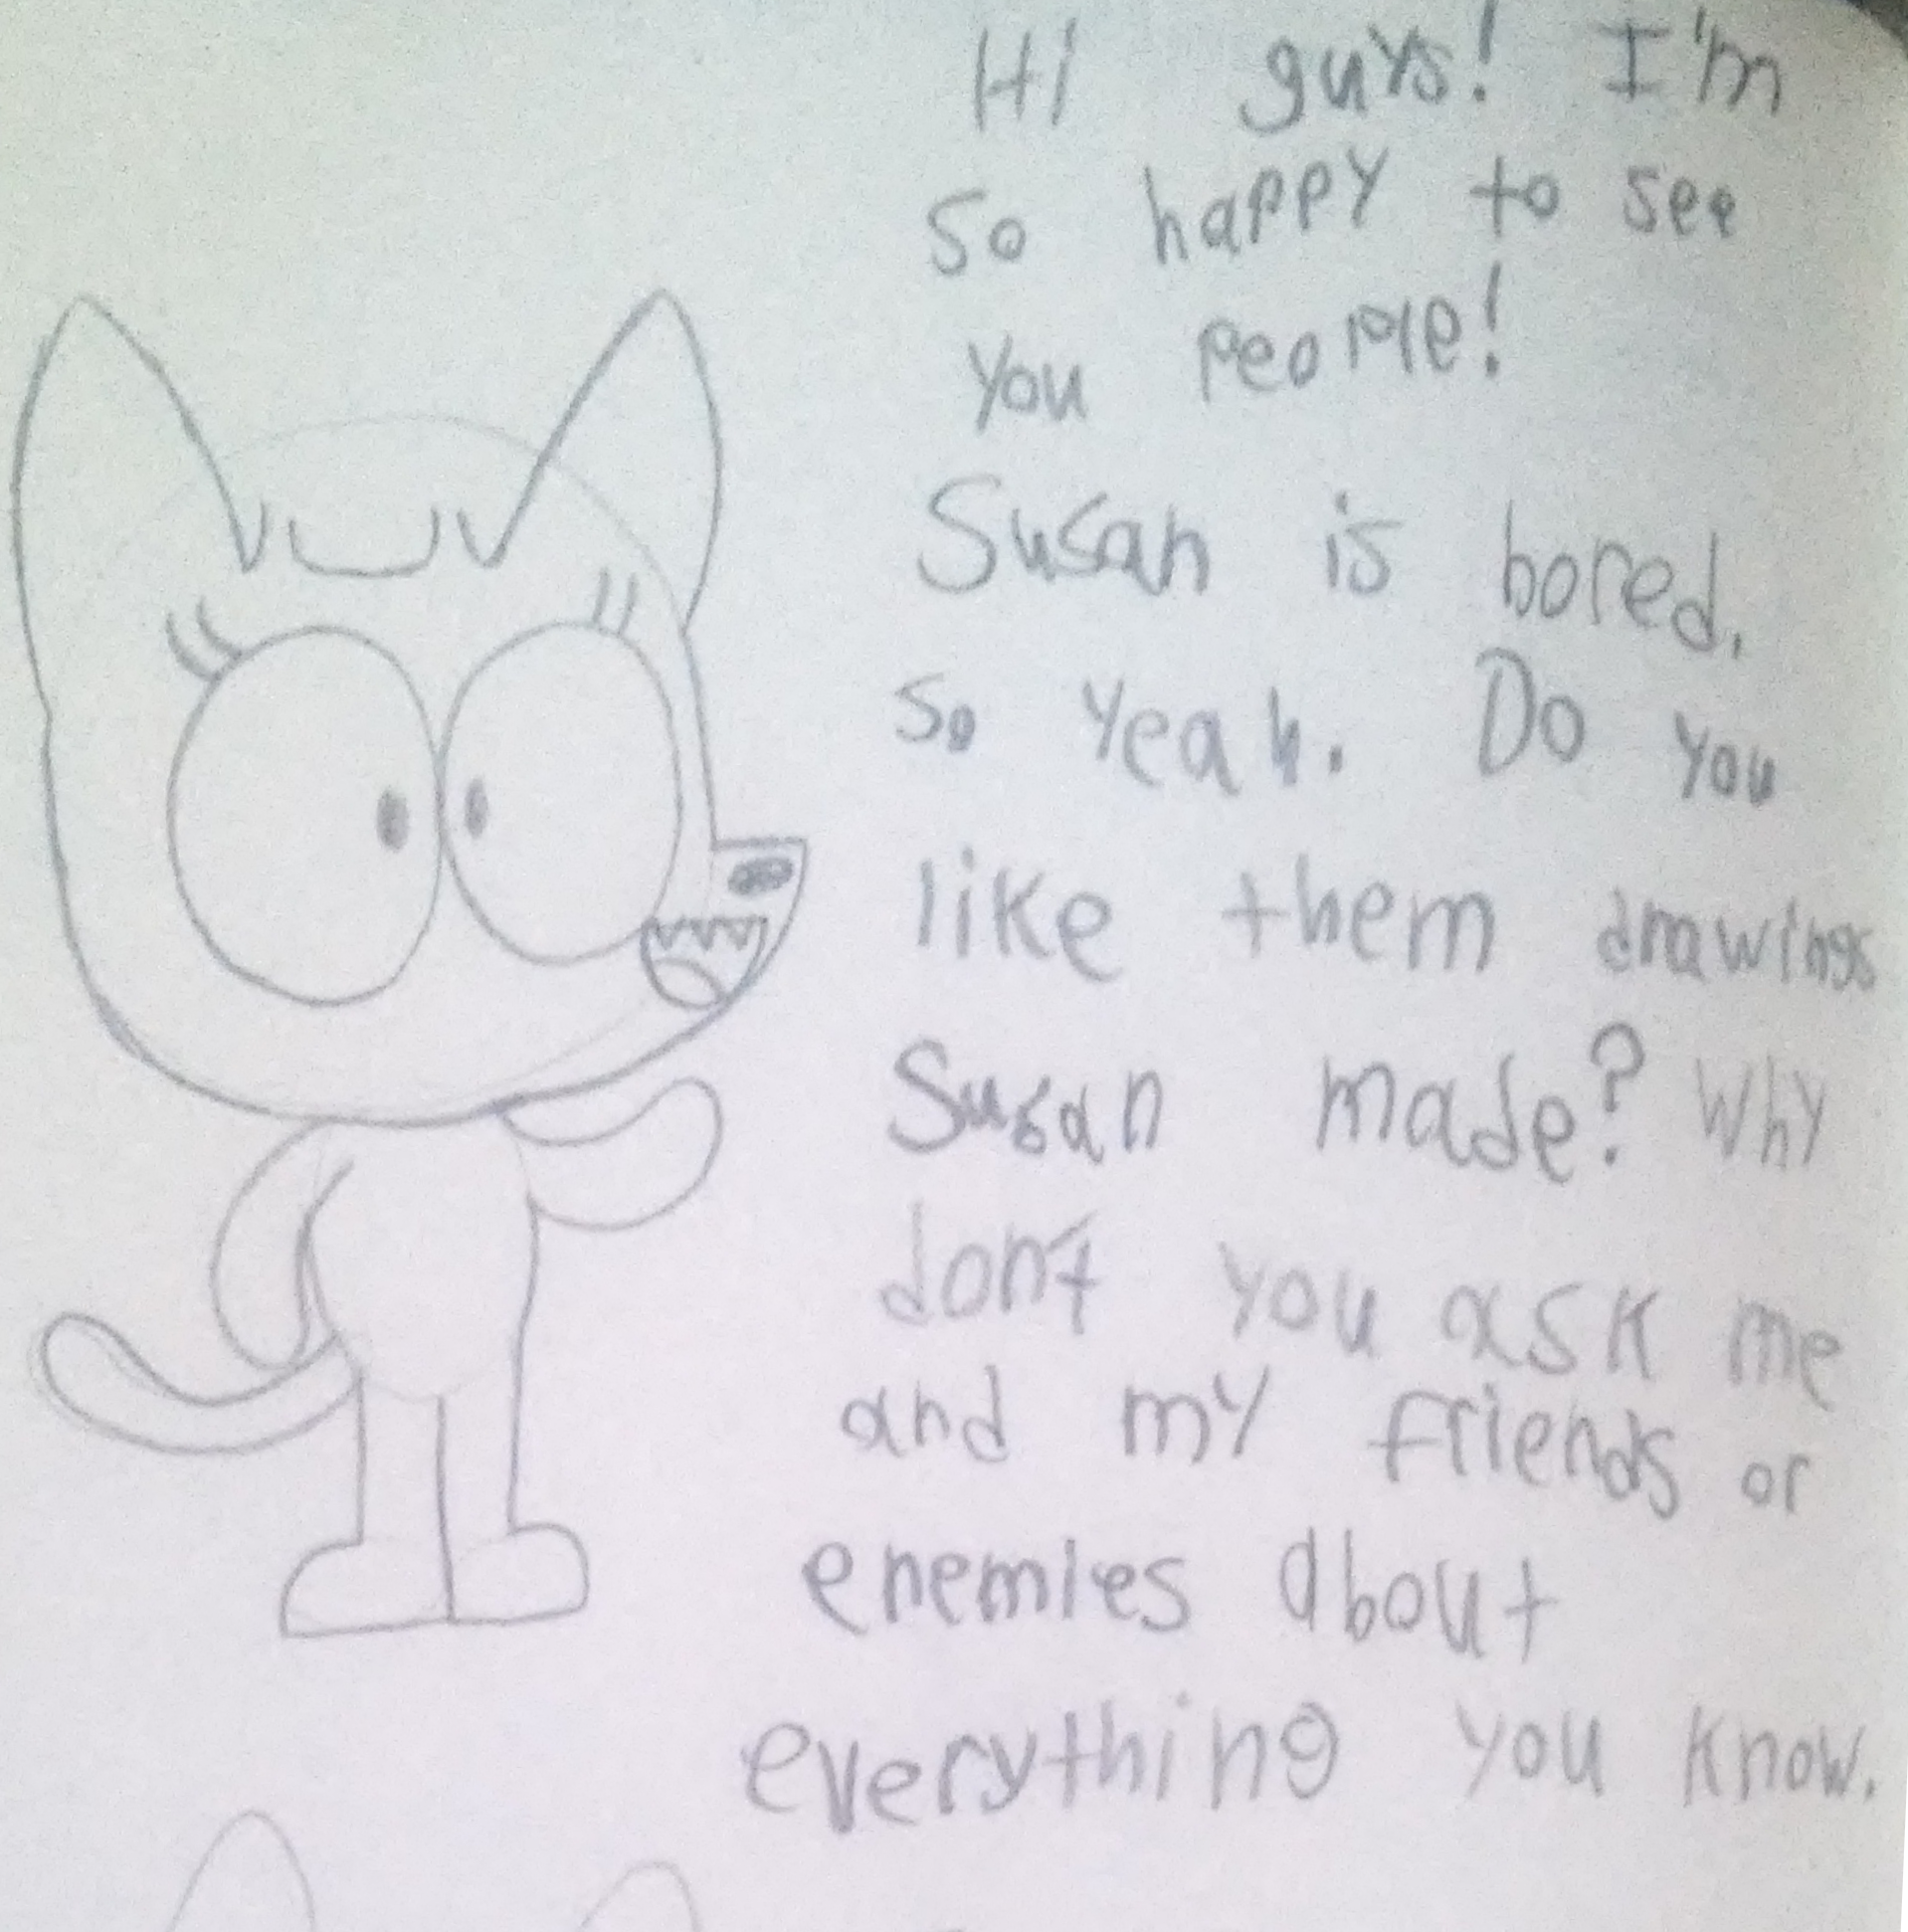 Hi guys! I'm
So happy to see
you people!
Susan is bored,
so yeah. Do you
like them drawings
Susan made? Why
don't you ask me
and my friends or
enemies about
everything you know.